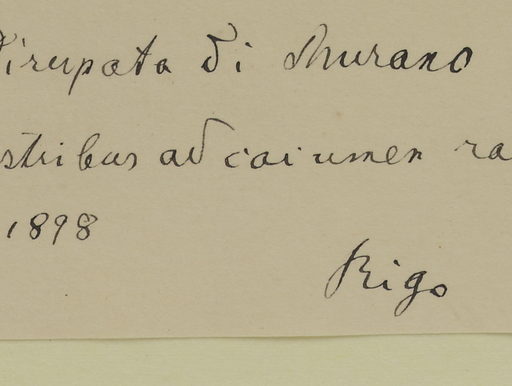 Dirupata di Murano
stribus ad caiumen ra
1898
Rigo